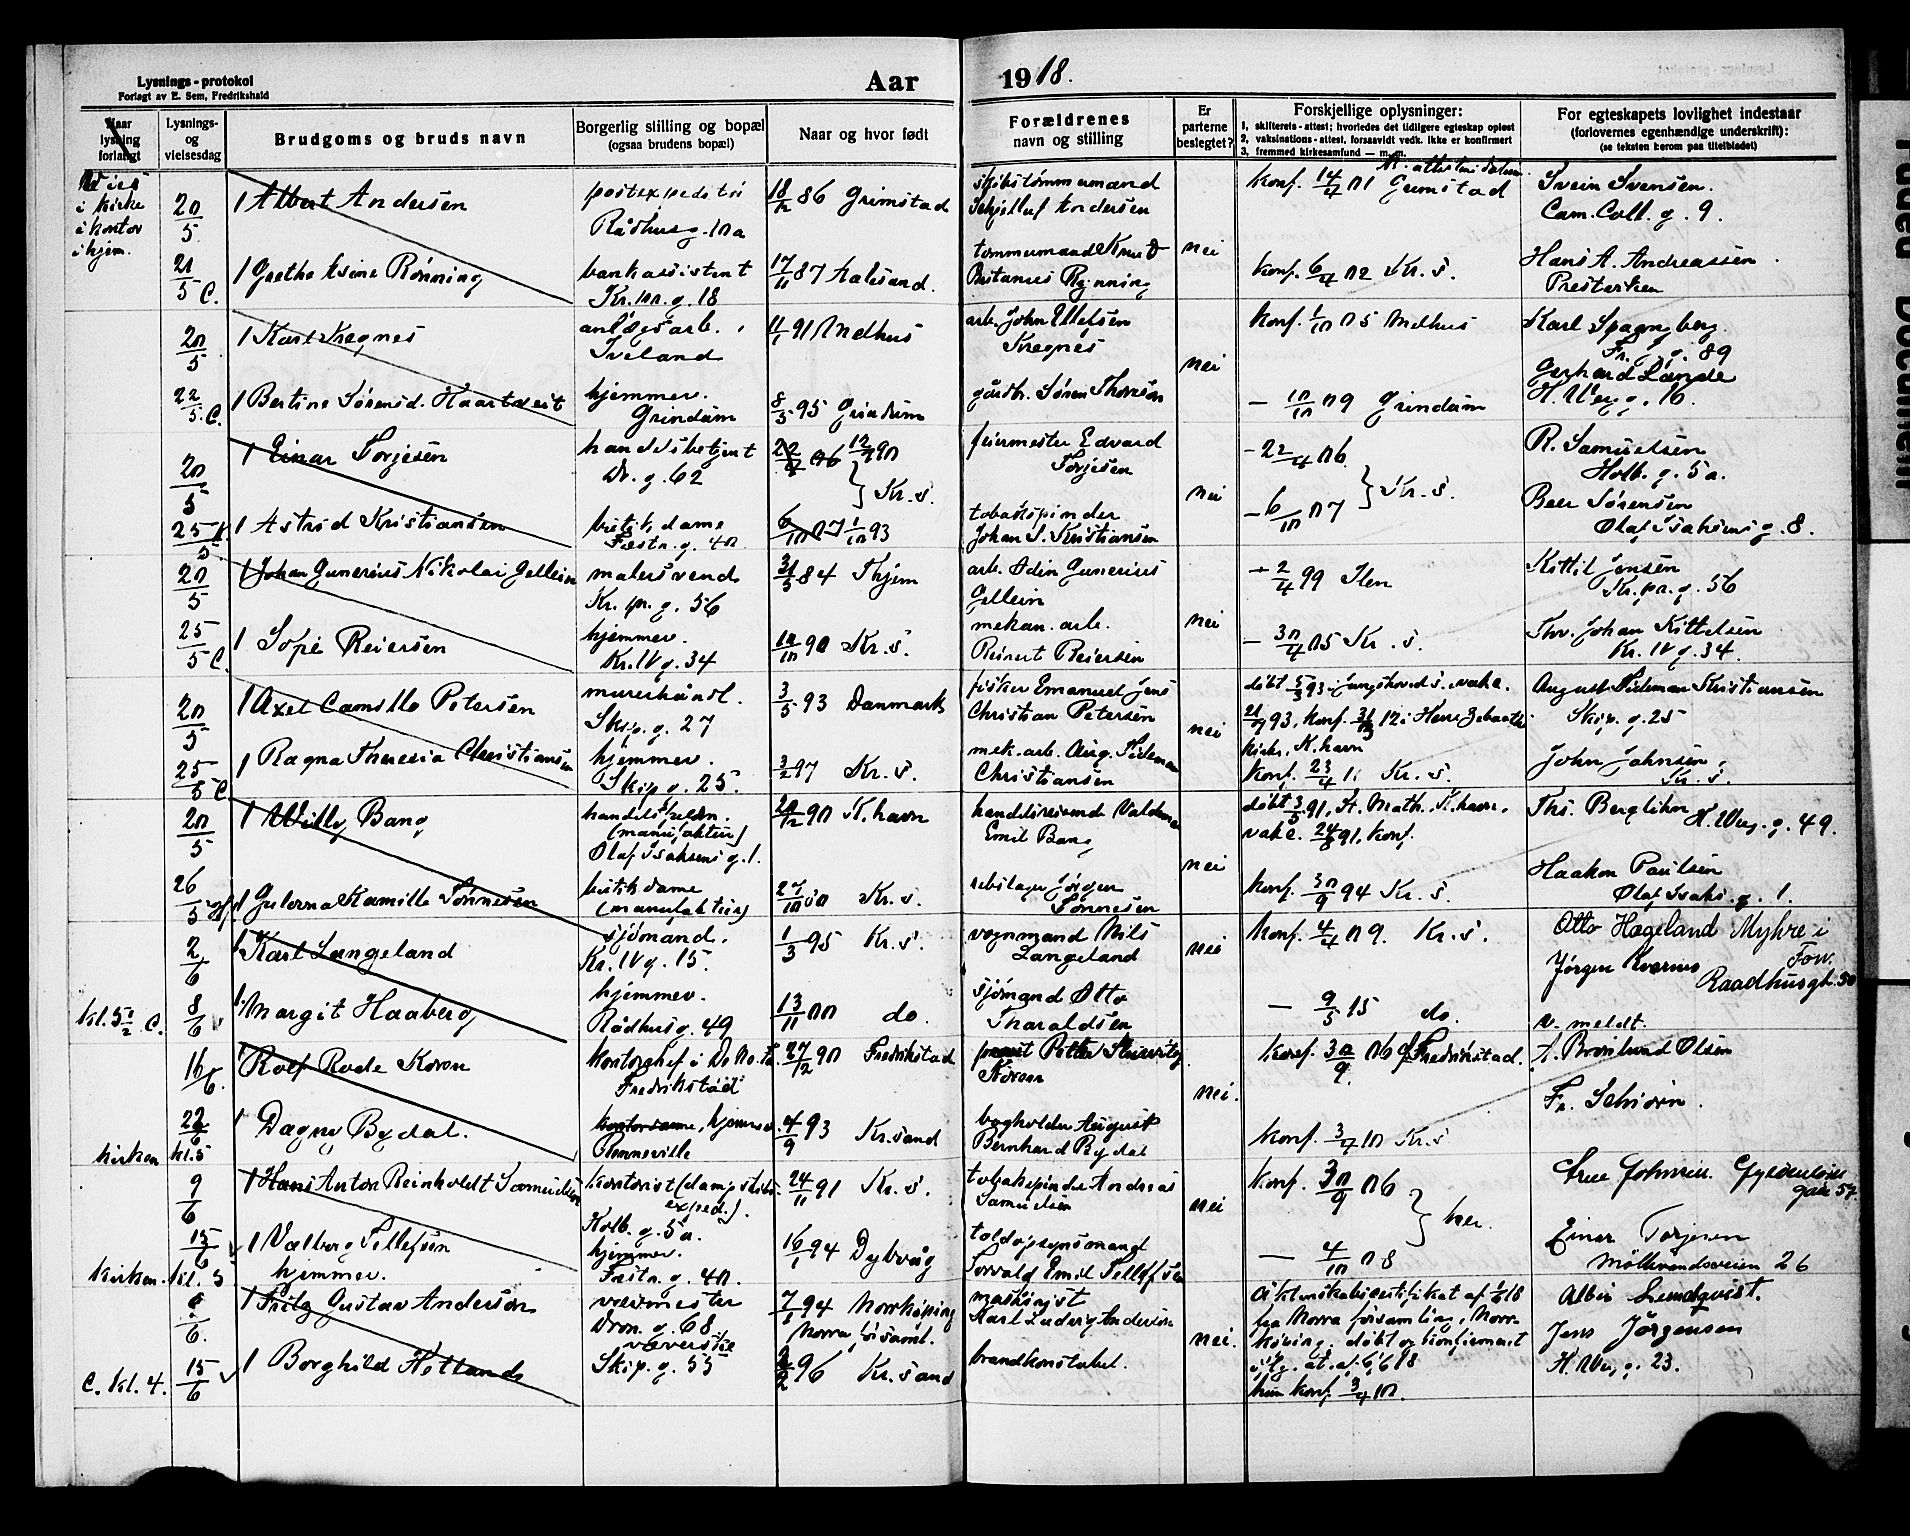 Lysnings-protokol
Forlagt av E. Sem, Fredrikshald
Aar
1918.
Naar lysning forlangt
Lysnings- og vielsesdag
Brudgoms og bruds navn
Borgerlig stilling og bopæl
(ogsaa brudens bopæl)
Naar og hvor født
Forældrenes
navn og stilling
Er parterne beslegtet?
Forskjellige oplysninger:
1, skifterets-attest; hvorledes det tidligere egteskap opløst
2, vaksinations-attest, forsaavidt vedk. ikke er konfirmert
3, fremmed kirkesamfund — m. m.
For egteskapets lovlighet indestaar
(forlovernes egenhændige underskrift):
(se teksten herom paa titelbladet)
i kirke
i kontor
i hjem.
20/5
1 Albert Andersen
postexpeditør
Rådhusg. 10a
18/12 86 Grimstad
skibstømmermand
Andersen
konf. 14/4 01 Grimstad
Svein Svensen.
Cam. Coll. g. 9.
21/5 C.
1 Grethe Rønning
bankassistent
Kr. pr. g. 18
17/11 87 Aalesund.
tømmermand Knut
Rønning
nei
konf. 6/4 02 Kr. S.
Hans A. Andreassen
Prestaasen
20/5
1 Karl Kregnes
anlægsarb.
Iveland
11/1 91 Melhus
arb. John Ellefsen
Kregnes
nei
konf. 1/10 05 Melhus
Karl Spangberg
89
22/5 C.
1 Bertine Sørensd. Haartveit
hjemmev.
Grindum
8/5 95 Grindum
gårdbr. Søren
— 10/10 09 Grindum
Gerhard Lande
H. Weg. g. 16.
20/5
1 Einar Torjesen
handelsbetjent
Dr. g. 62
12/7 90
Kr. S.
feiermester Edvard
Torjesen
nei
— 22/4 06
Kr. S.
R. Samuelsen
Holb. g. 5a.
25/5
1 Astrid Kristiansen
butikdame
Festn. g. 40
1/10 93
tobakspinder
Johan S. Kristiansen
— 6/10 07
Beer Sørensen
Olaf Isaksens g. 8.
20/5
1 Johan Gunerius Nikolai Gellein
malersvend
Kr. pr. g. 56
31/5 84 Thjem
arb. Odin Gunerius
Gellein
nei
— 2/4 99 Ilen
Kittil Jensen
Kr. pr. g. 56
25/5 C.
1 Sofie Reiersen
hjemmev.
Kr. IV g. 34
10/10 90 Kr. S.
mekan. arb.
Reinert Reiersen
— 30/4 05 Kr. S.
Thv. Johan Kittelsen
Kr. IV g. 34.
20/5
1 Axel Camillo Petersen
murerhåndl.
Skip. g. 27
3/5 93 Danmark
fisker Emanuel Jens
Christian Petersen
nei
August Tideman Kristiansen
Skip. g. 25
25/5 C
1 Ragna Theresia Christiansen
hjemmev.
Skip g. 25.
3/2 97 Kr. S.
mek. arb. Aug. Tideman
Christiansen
kirke, K.havn
konf. 23/4 11 Kr. S.
John Johnsen,
Kr. S.
20/5
1 Willy Bang
(manufaktur)
Olaf Isaksens g. 1.
20/12 90 K.havn
handelsreisende Valdemar
Emil Bang
nei
døbt 3/5 91, St. Math. K.havn,
vakc. 24/8 91. konf.
Ths. Berglihn H. Weg. g. 49.
26/5
1 Gulovna Kamilla Tønnesen
butikdame
(manufaktur)
27/10 80 Kr. S.
rebslager Jørgen
Tønnesen
konf. 30/9 94 Kr. S.
Haakon Paulsen
Olaf Isaks. g. 1.
2/6
1 Karl Langeland
sjömand.
Kr. IV g. 15.
1/3 95 Kr. S.
vognmand Nils
Langeland
nei
Konf. 4/4 09. Kr. S.
Otto Hageland Myhre i
Tow.
kl. 5 1/2 C.
8/6
1 Margit Haaberg
hjemmev.
Rådhusg. 49
13/11 00 do.
sjömand Otto
Tharaldsen
— 9/5 15 do.
Jørgen Kværnes
Raadhusgt. 50
meldt.
16/6.
1 Rolf Rode Koren
kontorchef i
Fredrikstad
27/12 90 Fredrikstad
Koren
nei.
konf. 30/9 06 Fredrikstad.
A. Bronlund Olsen
kirken kl. 5
22/6
1 Dagny Bydal.
kontordame, hjemmev.
4/9 93 Kr.sand
bogholder August
Bernhard Bydal
konf. 3/4 10 Kr. S
Fr. Schiørn.
9/6
1 Hans Anton Reinholdt Samuelsen
kontorist (dampskibs-
exped.).
Holb. g. 5a.
24/11 91 Kr. S.
tobakspinder Andreas
Samuelsen
nei
konf. 30/9 06
her.
Gyldenløves
gate 57.
kirken. kl. 5
15/6
1 Valborg Tellefsen
hjemmev.
hjemmev.
Festn. g. 40.
16/1 94 Dybvåg
toldopsynsmand
Torvald Emil Tellefsen
— 4/10 08
Einar Torjesen
Möllevandsveien 26
9/6.
1 Fritz Gustav Anderson
vævmester
Dron. g. 68
7/6 94 Norrköping
Norra församl.
maskinist
Karl Ludvig Anderson
nei.
Äktenskabscertifikat af
fra Norra församling, Norr-
köping, döbt og konfirmert
Albin Lundqvist.
C. kl. 4.
15/6
1 Borghild Hotland
væverske
Skip. g. 55
2/2 96 Kr.sand
brandkonstabel.
hun konf. 3/4 10.
Jens Jörgensen
H. Weg. g. 23.